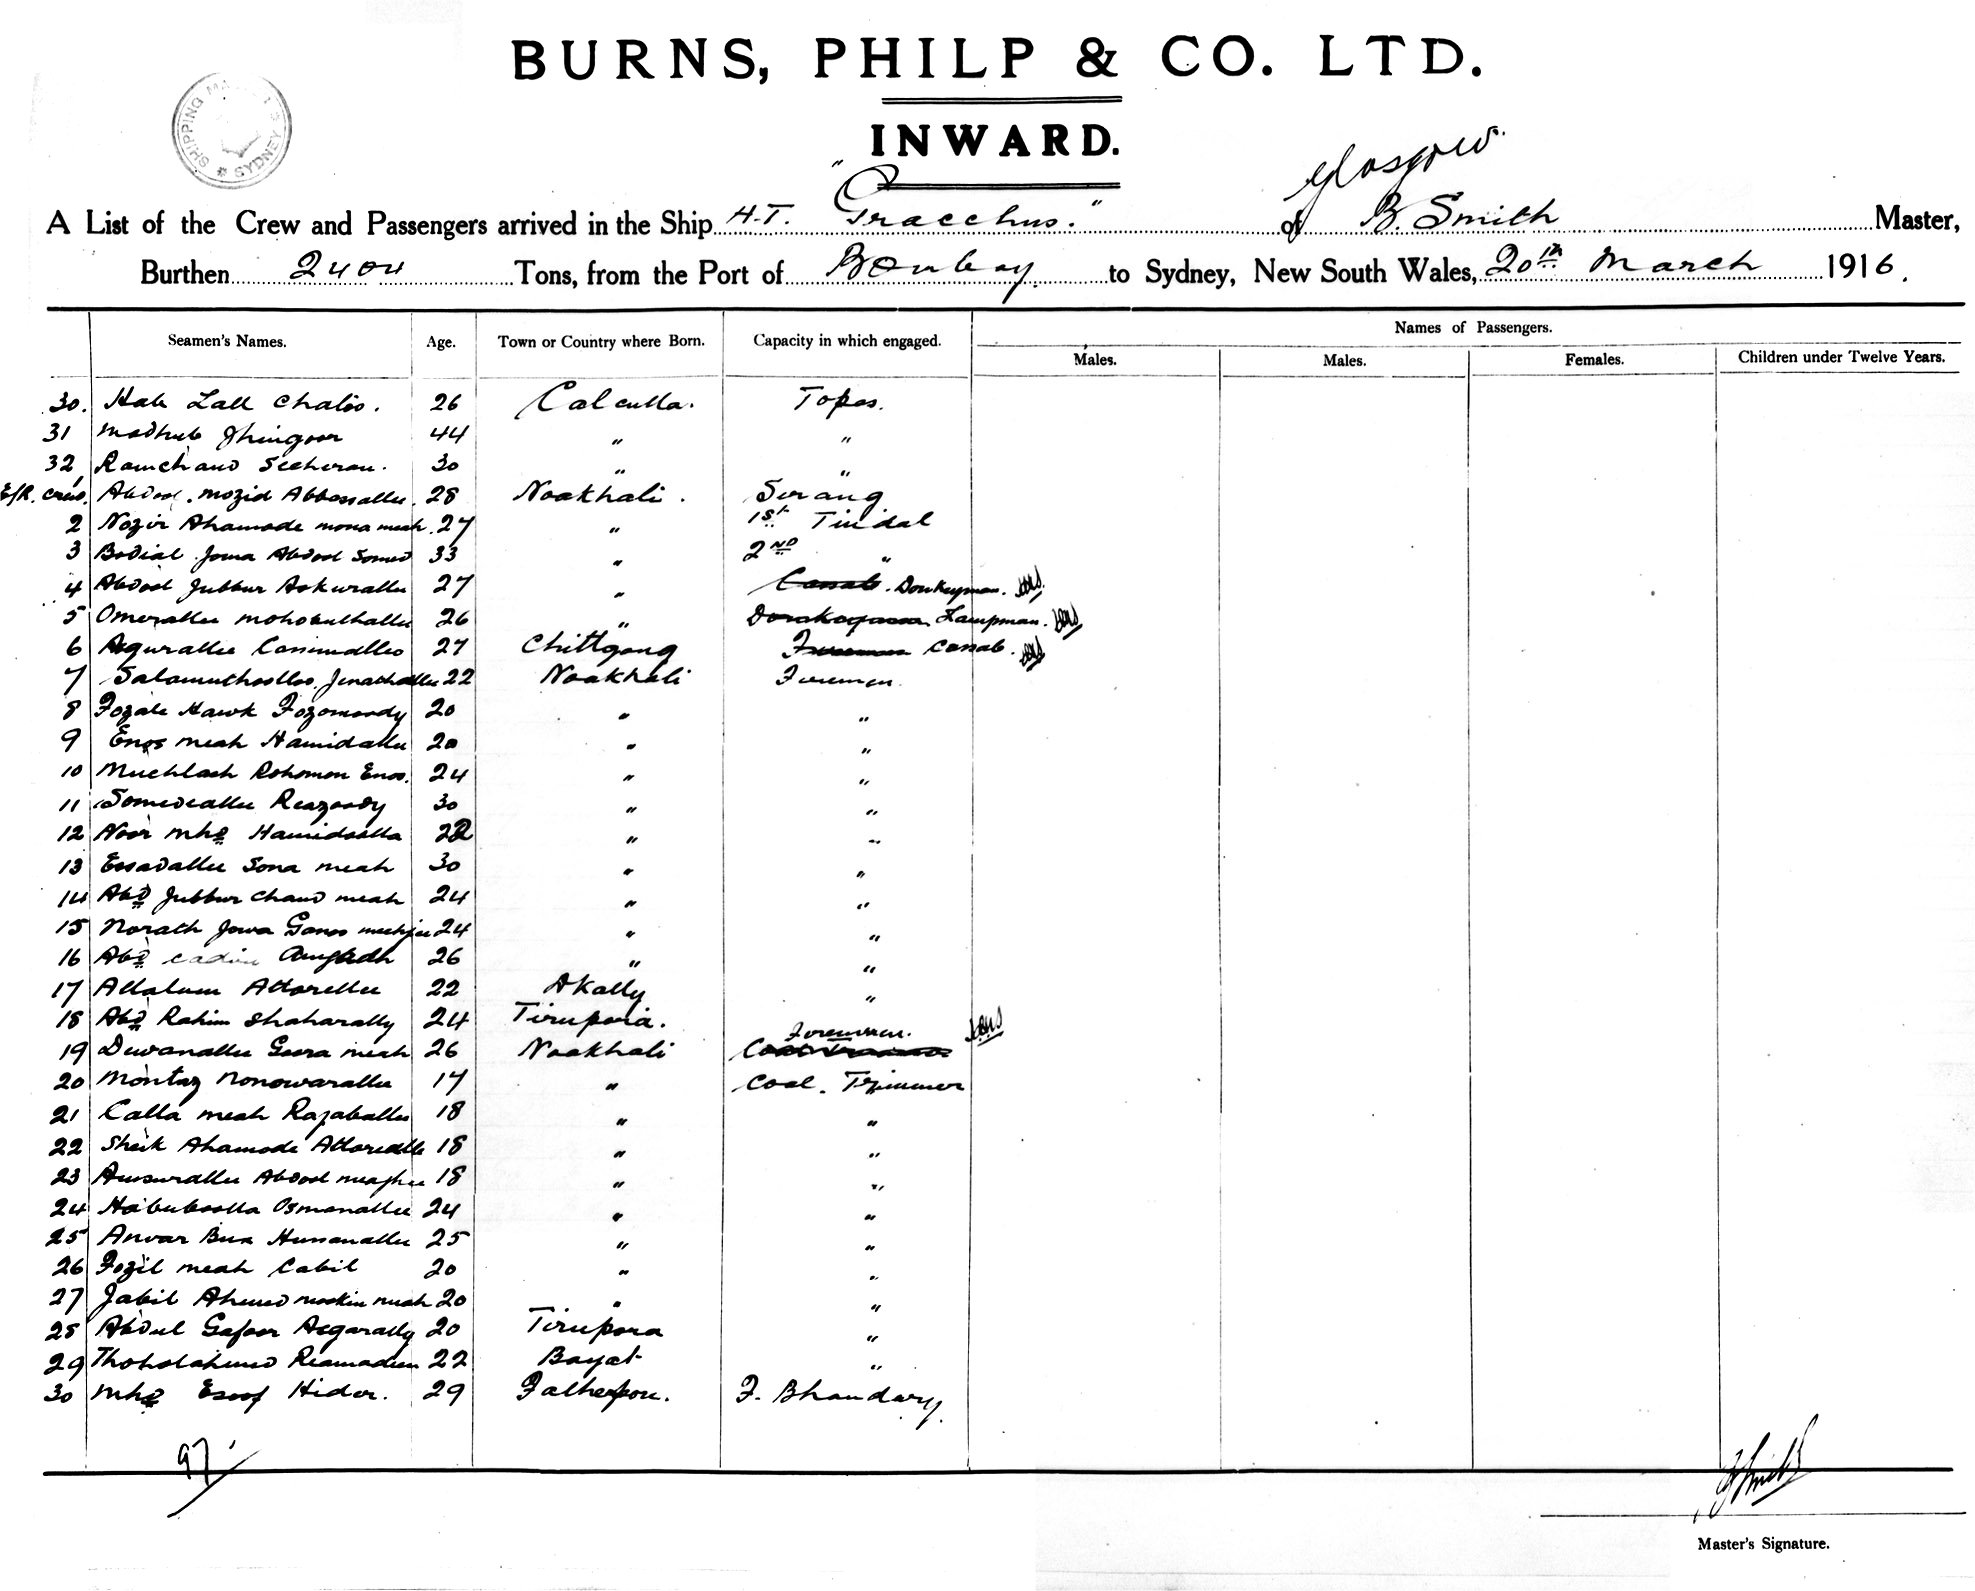 BURNS, PHILP & CO. LTD.
INWARD.
SHIPPING MA SYDNEY
Glasgow
A List of the Crew and Passengers arrived in the Ship H.T. "Gracchus." of B. Smith Master,
Burthen 2404 Tons, from the Port of Bombay to Sydney, New South Wales, 20th March 1916.
Names of Passengers.
Seamen's Names. Age. Town or Country where Born. Capacity in which engaged.
Males. Males. Females. Children under Twelve Years.
30. Lall 26 Calcutta. Topas.
31 Madhub Jhingoor 44 " "
32 Ramchand 30 " "
E/R. crew. Abdool Mozid Abbasallee. 28 Noakhali. Serang
2 Nozir Ahamode mona meah. 27 " 1st Tindal
3 Bodial Joma Abdool Somed 33 " 2nd "
4 Abdool Jubbur Askurallee 27 " Cassab. Donkeyman.
5 Omerallee 26 " Donkeyman Lampman.
6 Asgurallee 27 Chittgong Fireman Cassab.
7 22 Noakhali Firemen
8 Fozale Hawk Fozomoody 20 " "
9 Enos meah Hamidallee 20 " "
10 Muchlash Rohomon Enos. 24 " "
11 Somedeallee Reazoody 30 " "
12 Noor Mhd Hamidoolla 22 " "
13 Essadallee Sona meah 30 " "
14 Abd Jubbur Chand meah 24 " "
15 Norath Jowa 24 " "
16 Abd 26 " "
17 22 Akally "
18 Abd Rahim Shaharally 24 Tirupoia. Foreman.
19 Dewanallee Goora meah 26 Noakhali Coal Trimmer
20 Montaz Nonowarallee 17 " Coal. Trimmer
21 Calla meah Razaballee 18 " "
22 Sheik Ahamode 18 " "
23 Abdool 18 " "
24 Habuboolla Osmanallee 24 " "
25 Anwar Bux Hussanallee 25 " "
26 Fozil meah Cabil 20 " "
27 Jabil Ahmed meah 20 " "
28 Abdul Gafoor Asgarally 20 Tirupora "
29 22 Bayat "
30 Mhd Esoof Hidar. 29 Fatherpore. F. Bhandary.
97
B Smith
Master's Signature.